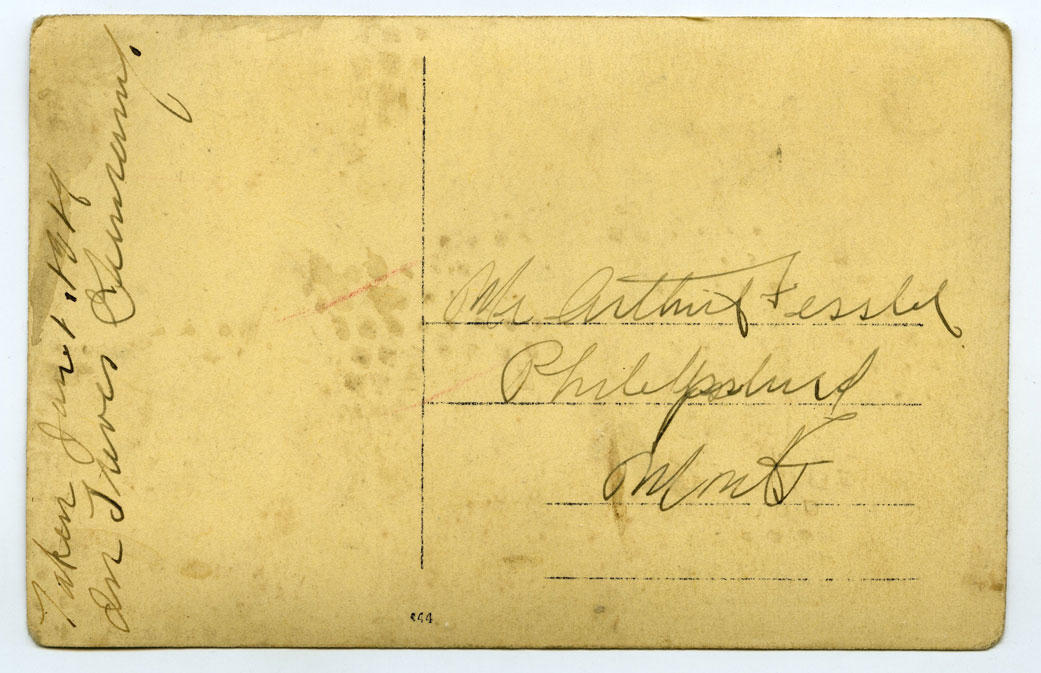 Taken Jan 1. 1919
In Treves Germany.
Mr Arthur Fessler
Philipsburg
Mont
844